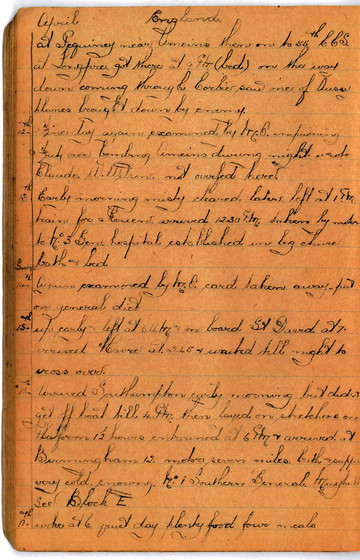 April England
at near Amiens then on to 55th C.C.S.
at Longpre got there at 7 PM (beds) on the way
down coming through Corbie saw one of Aussi
planes brought down by enemy.
12th fine day again examined by M.O. improving
air bombing Amiens during night wrote
Claude, W. not verfed there.
13 Early morning misty cleared later left at 1 PM
train for Rouen arrived 12.30 PM taken by motor
to No 5 Gen. hospital established in big
bath & bed
Sun
14th Again examined by M.O. card taken away - put
on general diet
15th up early & left at 6 AM & on board St David at 7.
arrived Havre at 3.45 & waited till night to
cross over.
16th Arrived Southampton early morning but didnt
get off boat till 4 PM. then layed on stretchers on
Platform 1½ hours entrained at 6 PM & arrived at
Birmingham 12. motor seven miles. bath & supper
very cold, snowing. No 1 Southern General Hospital
Sec Block E
17th woke at 6 quiet day plenty food four meals